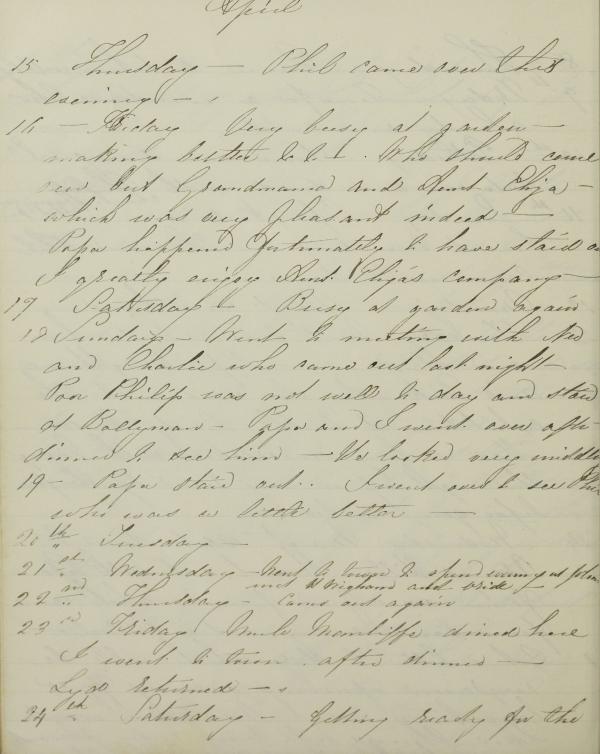 April
15 Thursday — Phil came over this
evening —
16 — Friday Very busy at garden —
making butter &c &c —. Who should come
over but Grandmama and Aunt Eliza —
which was very pleasant indeed —
Papa happened fortunately to have staid
I greatly enjoy Aunt Eliza's company —
17 Satterday — Busy at garden again
18 Sunday — Went to meeting with Ned
and Charlie who came out last night —
Poor Philip was not well to day and staid
at Ballyman — Papa and I went over after
dinner to see him — He looked very middling
19 — Papa staid out.. I went over to see Phil
who was a little better —
20th Tuesday —
21st Wednesday — Went to town to spend evening at
met Wigham and bride —
22nd Thursday — came out again
23rd Friday Uncle dined here
I went to town after dinner —
Lydo returned —
24th Saturday — Getting ready for the